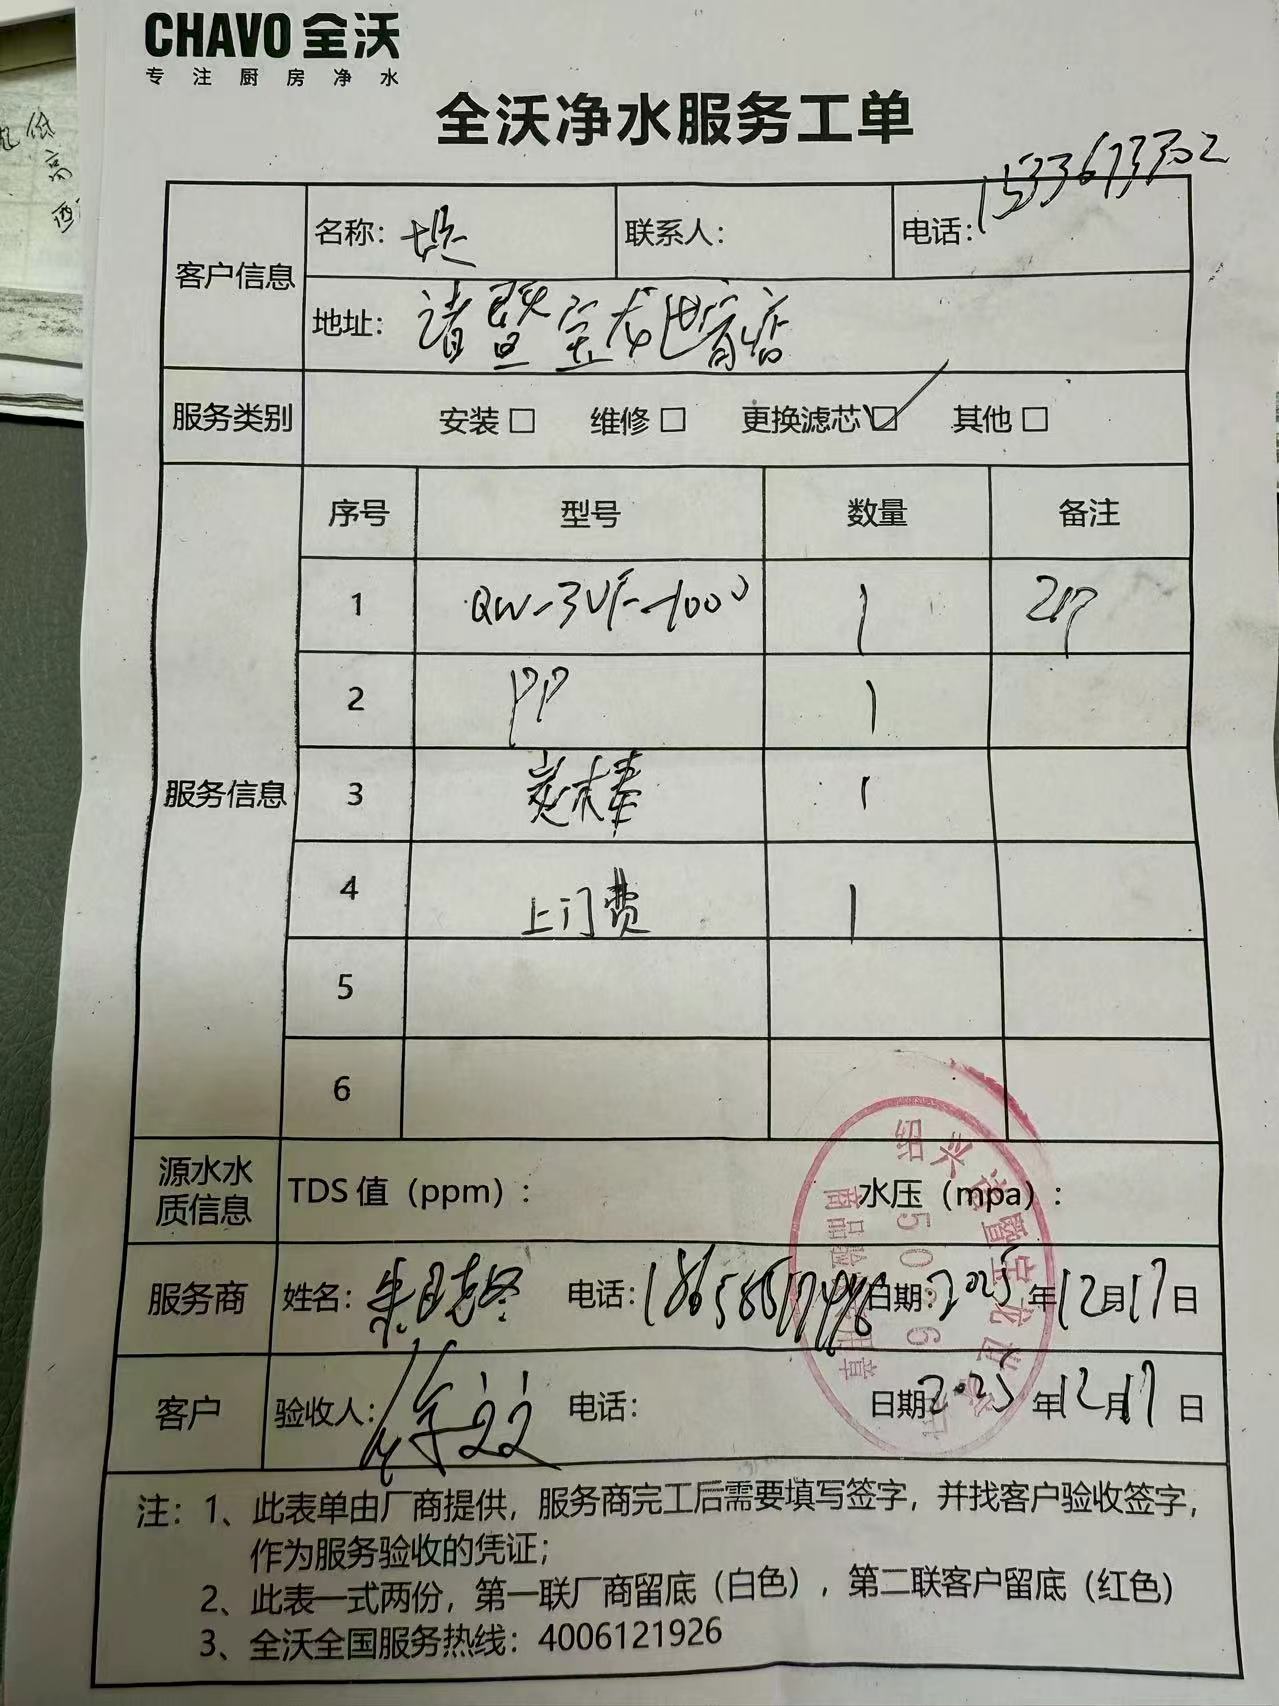 CHAVO 全沃
专注厨房净水
全沃净水服务工单
客户信息 名称： 联系人： 电话：15336733702
地址：诸暨宝龙世客店
服务类别 安装□ 维修□ 更换滤芯☑ 其他□
序号 型号 数量 备注
1 QW-3UF-1000 1
2 PP 1
服务信息 3 炭末棒 1
4 上门费 1
5
6
源水水质信息 TDS 值（ppm）： 水压（mpa）：
服务商 姓名： 电话： 日期：2025年12月17日
客户 验收人： 电话： 日期2025年12月17日
注：1、此表单由厂商提供，服务商完工后需要填写签字，并找客户验收签字，
作为服务验收的凭证；
2、此表一式两份，第一联厂商留底（白色），第二联客户留底（红色）
3、全沃全国服务热线：4006121926